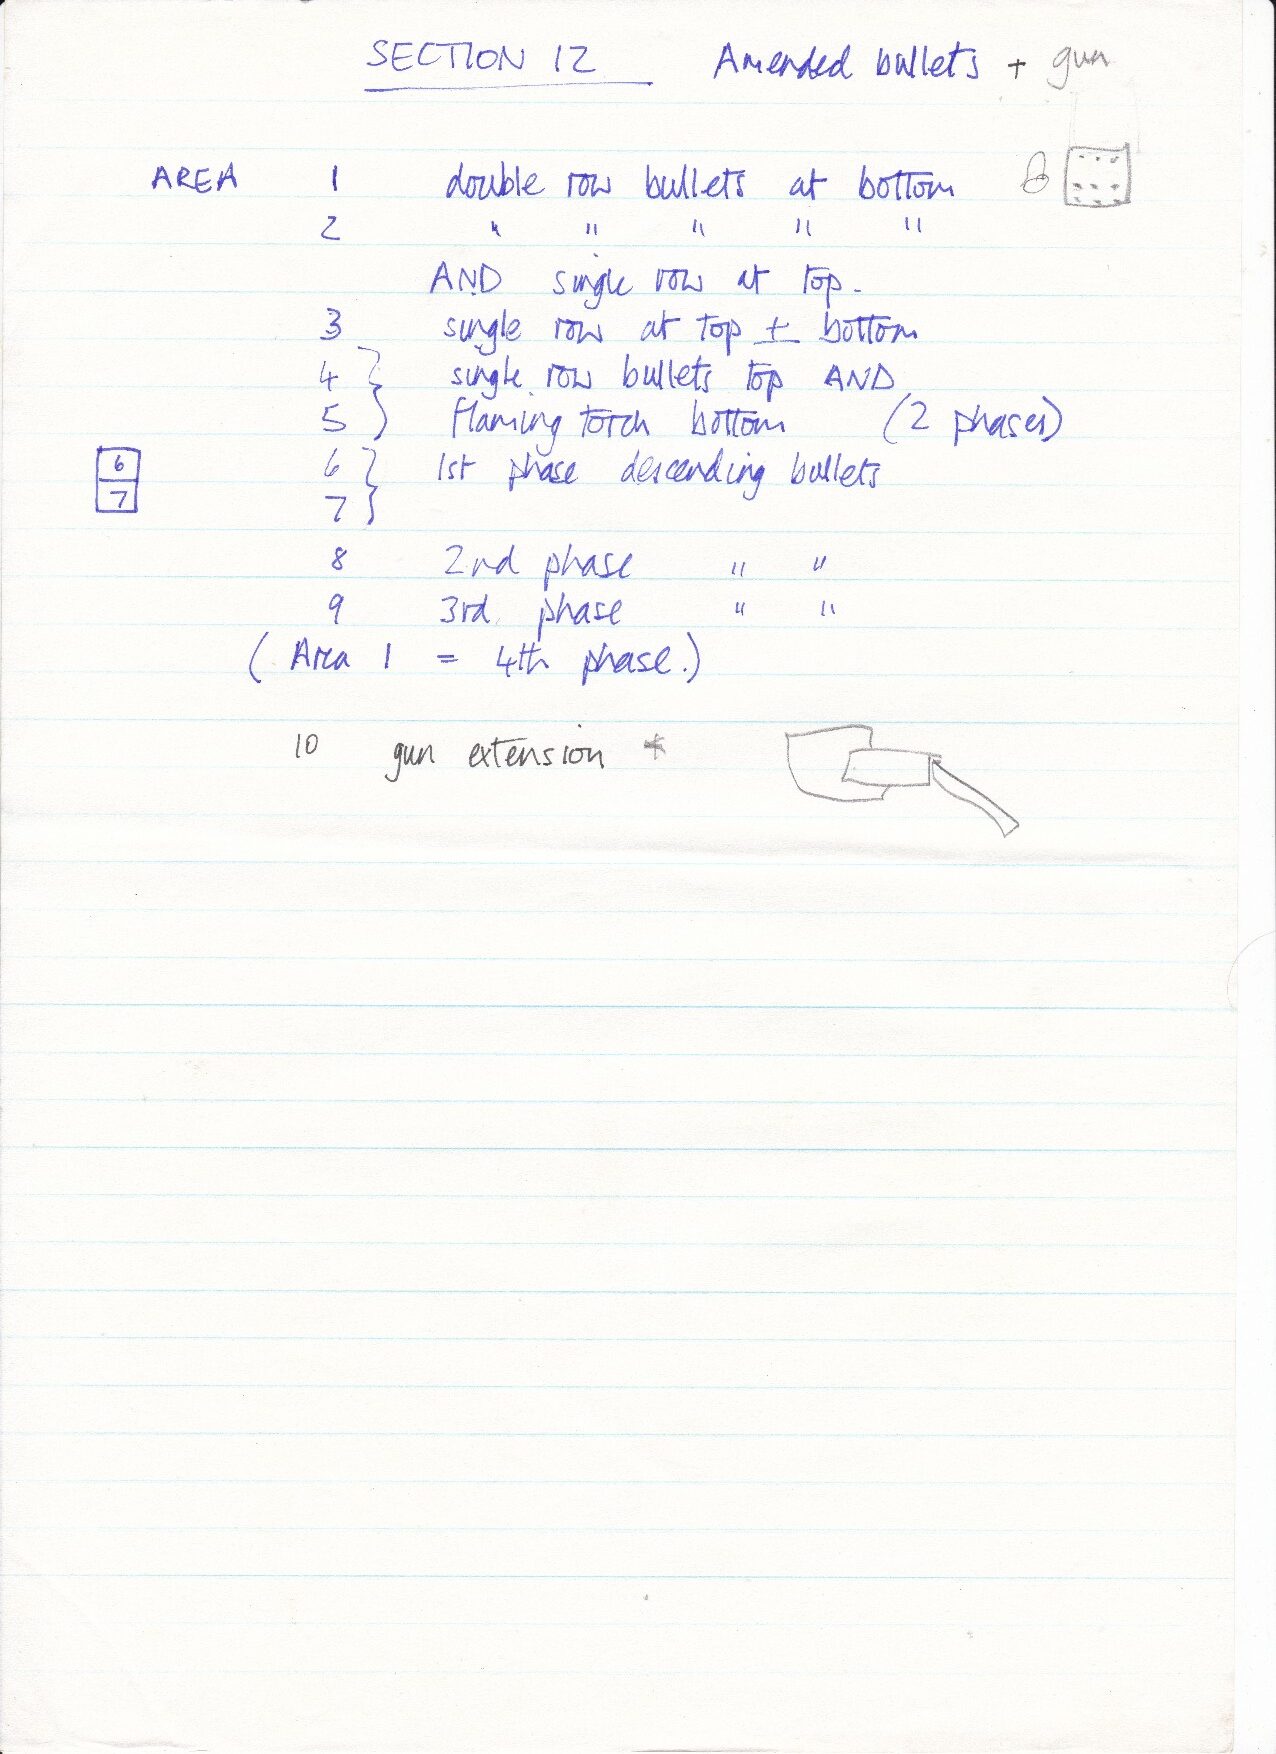 SECTION 12 Amended bullets + gun
AREA 1 double row bullets at bottom
2 " " " " "
AND single row at top.
3 single row at top ± bottom
4 } single row bullets top AND
5 } flaming torch bottom (2 phases)
6 6 } 1st phase descending bullets
7 7 }
8 2nd phase " "
9 3rd phase " "
(Area 1 = 4th phase.)
10 gun extension *